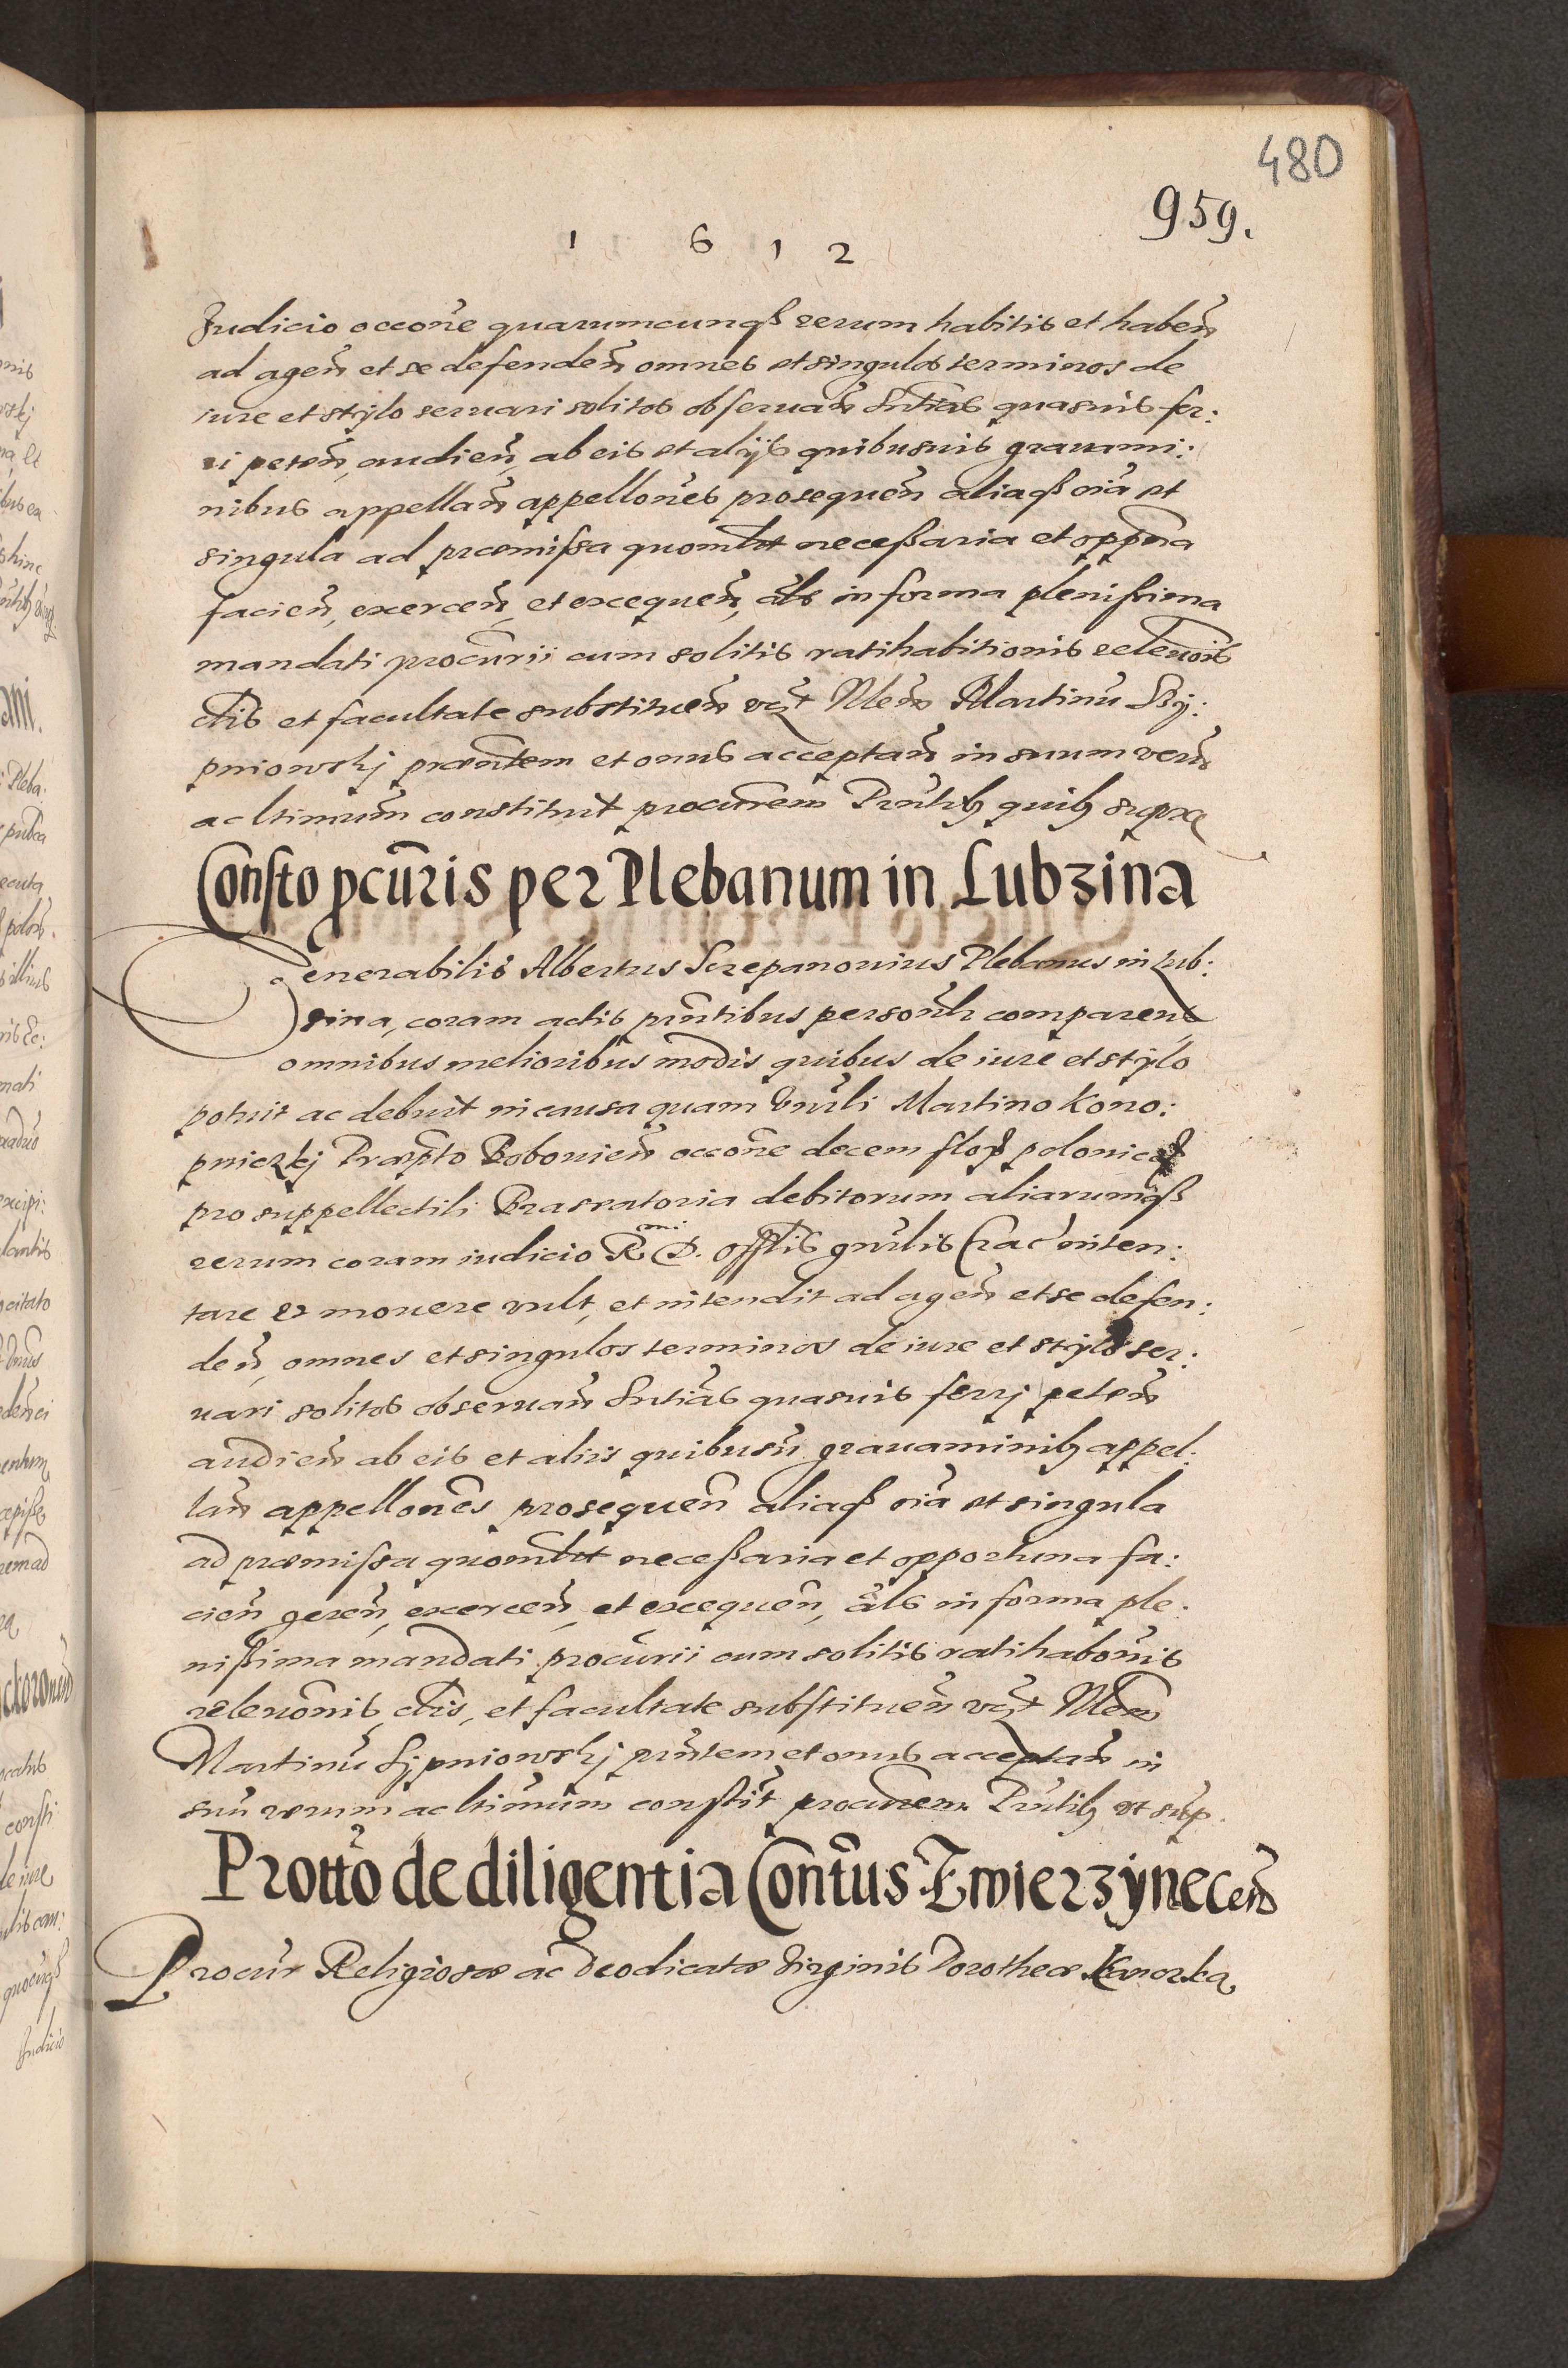 480
959.
1 6 1 2
Judicio occone quarumcunqß rerum habitis et haben
ad agen et se defenden omnes et singulos terminos de
iure et stylo seruari solitos obseruan Sntias quasuis fer:
ri peten, audien, ab eis et alijs quibusuis grauami:
nibus appellan appellones prosequen aliaqß oia et
singula ad præmissa quomlt necessaria et oppna
facien, exercen, et exequen, als in forma plenissima
mandati procurii cum solitis ratihabitionis releuois
clis et facultate substituen vct Nlem Martinu Sy:
pniowskj præntem et onus acceptan in suum veru
ac ltimum constituit procurem Pntib quib supra
Consto pcuris per Plebanum in Lubzina
Venerabilis Albertus Sczepanouius Plebanus in Lub:
zina, coram actis pntibus personlr comparens
omnibus melioribus modis quibus de iure et stylo
potuit ac debuit in causa quam Vnrli Martino Kono:
pniczkj Præpto Bobouien occone decem flor polonical
pro suppellectili Braseatoria debitorum aliarumqß
rerum coram iudicio R mi D. Offlis gnrlis Crac inten:
tare et mouere vult, et intendit ad agen et se defen:
den, omnes et singulos terminos de iure et stylo ser:
uari solitos obseruan Sntias quasuis ferrj peten
audien ab eis et aliis quibusu grauaminib appel:
lan appellones prosequen aliaqß oia et singula
ad præmissa quomlt necessaria et opportuna fa:
cien geren, exercen, et exequen, als in forma ple:
nissima mandati procurii cum solitis ratihabonis
releuonis, clis, et facultate substituen vct Nlem
Martinu Sypniowskj pntem et onus acceptan in
suu verum ac ltimum constit procurem Pntib vt sup.
Protto de diligentia Contus Zwierzynecen
Procur Religiosæ ac Deodicatæ Virginis Dorotheæ Kanorka